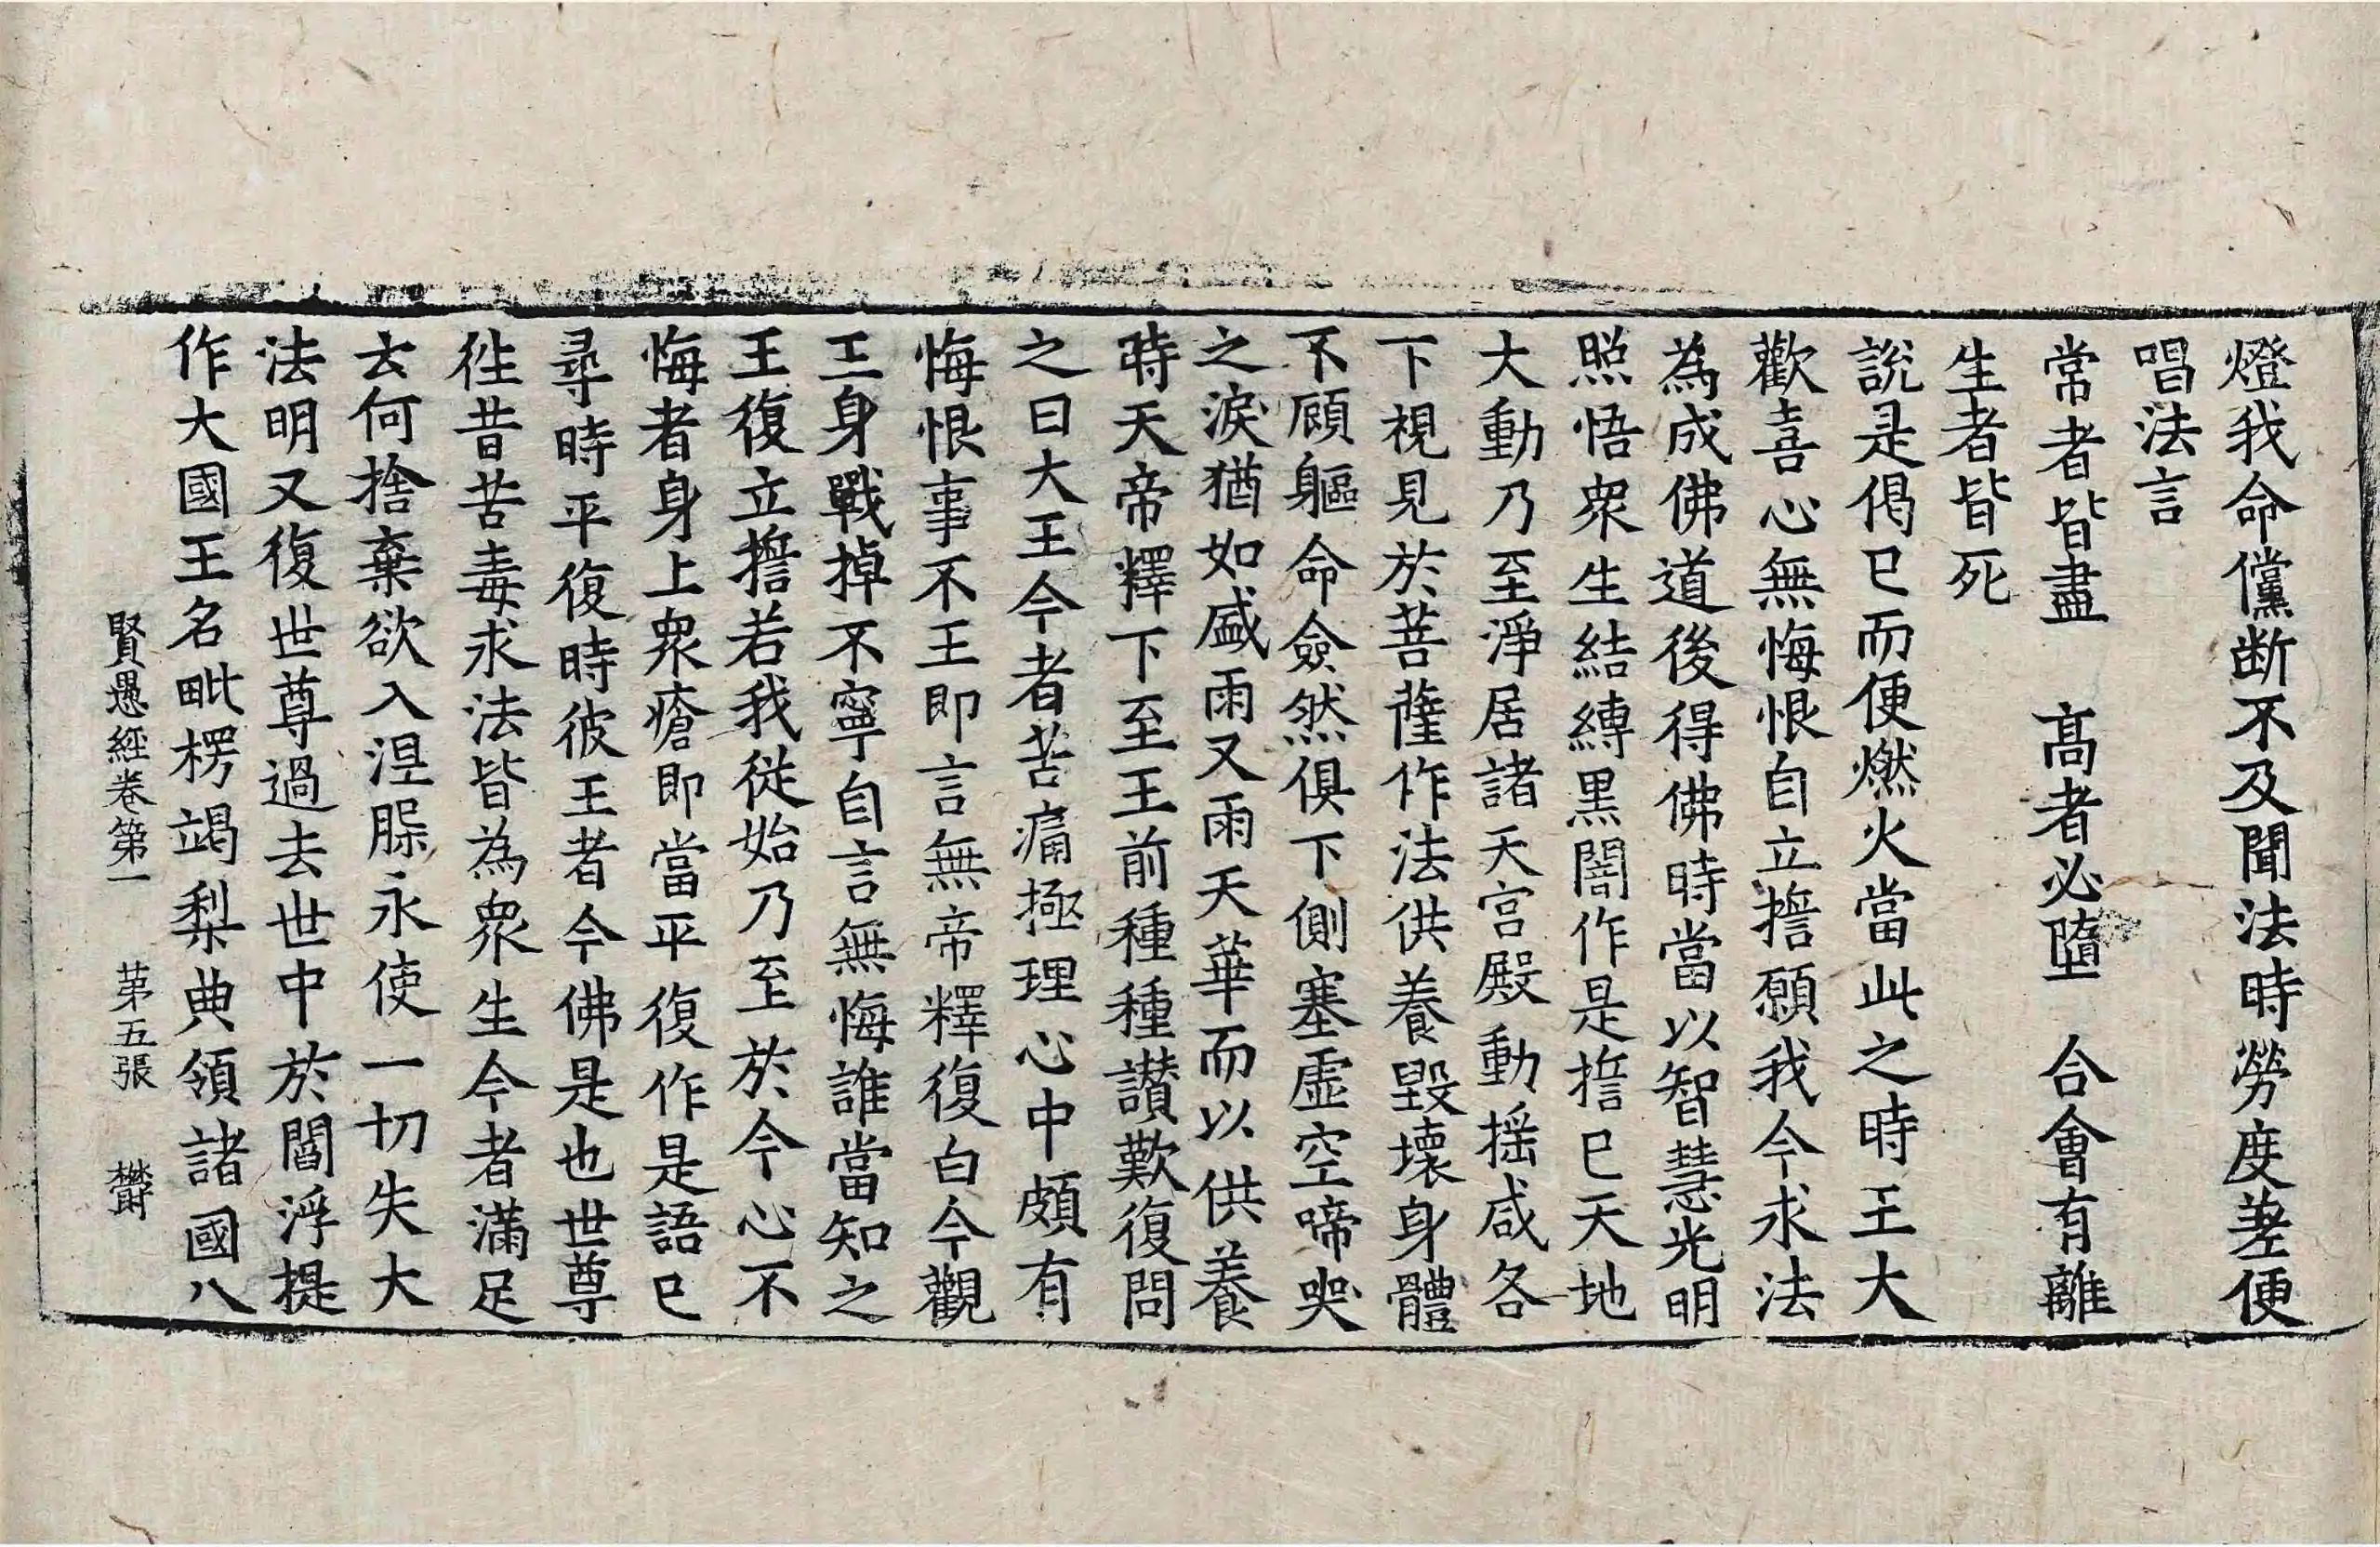 燈我命儻断不及聞法時勞度差便
唱法言
常者皆盡　高者必墮　合會有離
生者皆死
說是偈已而便燃火當此之時王大
歡喜心無悔恨自立擔願我今求法
為成佛道後得佛時當以智慧光明
照悟衆生結縛黒闇作是擔已天地
大動乃至淨居諸天宫殿動揺咸各
下視見於菩薩作法供養毀壞身體
不顧軀命僉然俱下側塞虛空啼哭
之淚猶如盛雨又雨天華而以供養
時天帝釋下至王前種種讃歎復問
之曰大王今者苦痛極理心中頗有
悔恨事不王即言無帝釋復白今觀
王身戰掉不寧自言無悔誰當知之
王復立擔若我従始乃至於今心不
悔者身上衆瘡即當平復作是語已
尋時平復時彼王者今佛是也世尊
徃昔苦毒求法皆為衆生今者滿足
云何捨棄欲入涅槃永使一切失大
法明又復世尊過去世中於閻浮提
作大國王名毗楞竭梨典領諸國八
賢愚經卷第一　第五張　欝